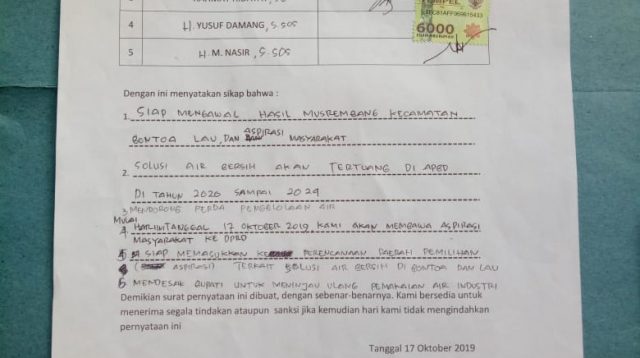 4 H. YUSUF DAMANG, S.SOS
6000
5 H. M. NASIR, S.SOS
Dengan ini menyatakan sikap bahwa :
1. SIAP MENGAWAL HASIL MUSREMBANG KECAMATAN
BONTOA LAU, DAN ASPIRASI MASYARAKAT
2. SOLUSI AIR BERSIH AKAN TERTUANG DI APBD
DI TAHUN 2020 SAMPAI 2024
3. MENDORONG PERDA PENGELOLAAN AIR
MULAI
4. HARI INI TANGGAL 17 OKTOBER 2019 KAMI AKAN MEMBAWA ASPIRASI
MASYARAKAT KE DPRD
5 SIAP MEMASUKKAN PERENCANAAN DAERAH PEMILIHAN
( ASPIRASI) TERKAIT SOLUSI AIR BERSIH DI BONTOA DAN LAU
6 MENDESAK BUPATI UNTUK MENINJAU ULANG PEMAKAIAN AIR INDUSTRI
Demikian surat pernyataan ini dibuat, dengan sebenar-benarnya. Kami bersedia untuk
menerima segala tindakan ataupun sanksi jika kemudian hari kami tidak mengindahkan
pernyataan ini
Tanggal 17 Oktober 2019